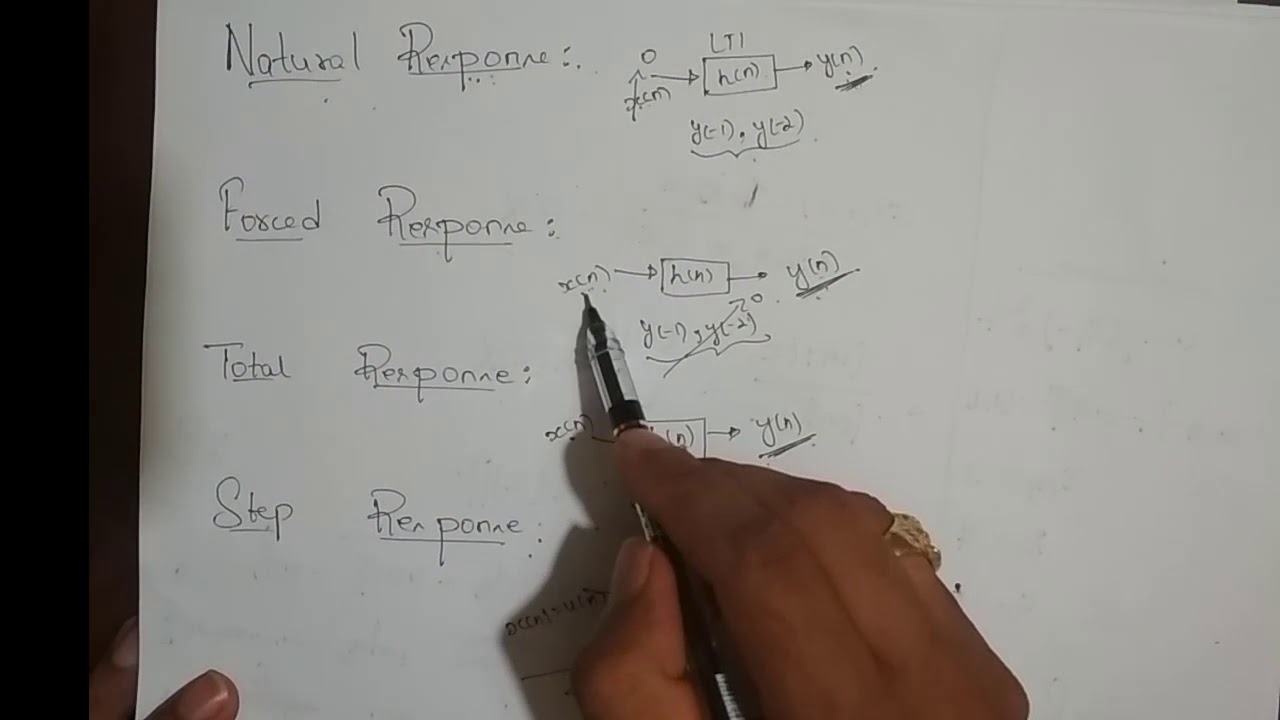 Natural Response:
0
LTI
x(n)
h(n)
y(n)
y(-1), y(-2)
Forced Response:
x(n)
h(n)
y(n)
0
y(-1), y(-2)
Total Response:
x(n)
(n)
y(n)
Step Response:
x(n)=u(n)